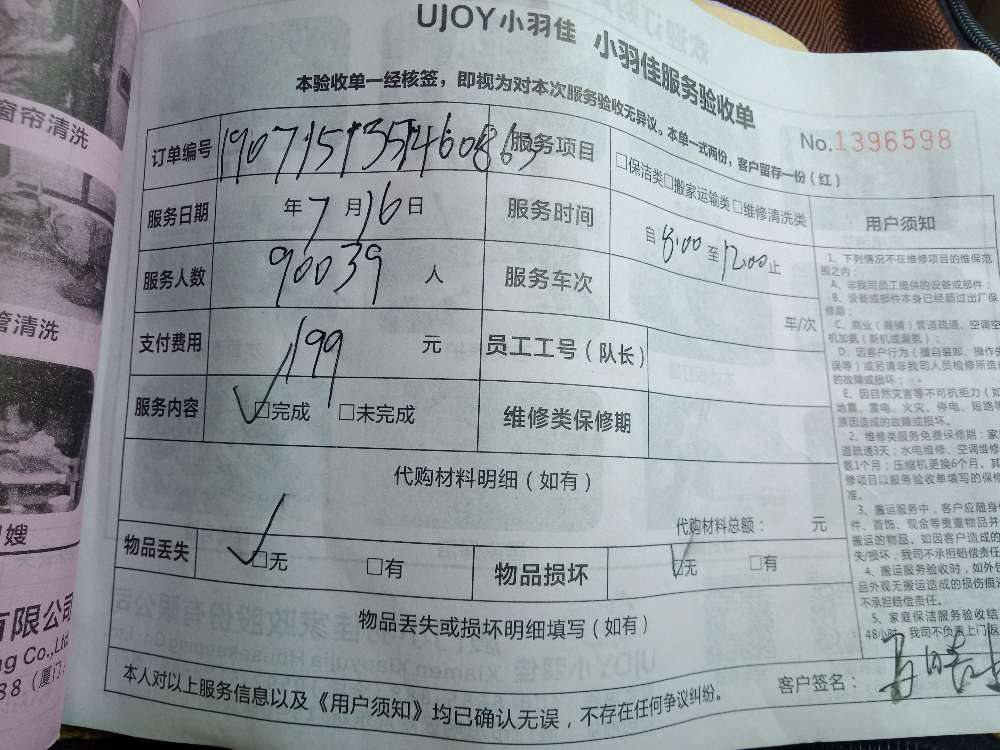 UJOY小羽佳 小羽佳服务验收单
本验收单一经核签，即视为对本次服务验收无异议。本单一式两份，客户留存一份（红）
No.1396598
订单编号 服务项目 □保洁类□搬家运输类□维修清洗类
服务日期 年7月16日 服务时间 自8:00至12:00止
服务人数 90039 人 服务车次 车/次
支付费用 199 元 员工工号（队长）
服务内容 □完成 □未完成 维修类保修期
代购材料明细（如有）
代购材料总额： 元
物品丢失 □无 □有 物品损坏 □无 □有
物品丢失或损坏明细填写（如有）
本人对以上服务信息以及《用户须知》均已确认无误，不存在任何争议纠纷。
客户签名：
用户须知
1、下列情况不在维修项目的维保范
围之内：
A、非我司员工提供的设备或部件；
B、设备或部件本身已经超过出厂保
修期；
C、商业（商铺）管道疏通、空调空
机加氨（新机或漏氨）；
D、因客户行为（擅自装卸、操作失
误等）或另请非我司人员检修所造成
的故障或损坏；
E、因自然灾害等不可抗拒力（如
地震、雷电、火灾、停电、短路等
原因造成的故障或损坏。
2、维修类服务免费保修期：家
道疏通3天；水电维修、空调维修
氨1个月；压缩机更换6个月，其
修项目以服务验收单填写的保修
准。
3、搬运服务中，客户应随身
件、首饰、现金等贵重物品并
搬运的物品，如因客户造成的
失/损坏，我司不承担赔偿责任
4、搬运服务验收时，如外包
品外观无搬运造成的损伤痕迹
不承担赔偿责任。
5、家庭保洁服务验收结
48小时，我司不负责上门返
窗帘清洗
管清洗
嫂
有限公司
ng Co.,Ltd
88（厦门